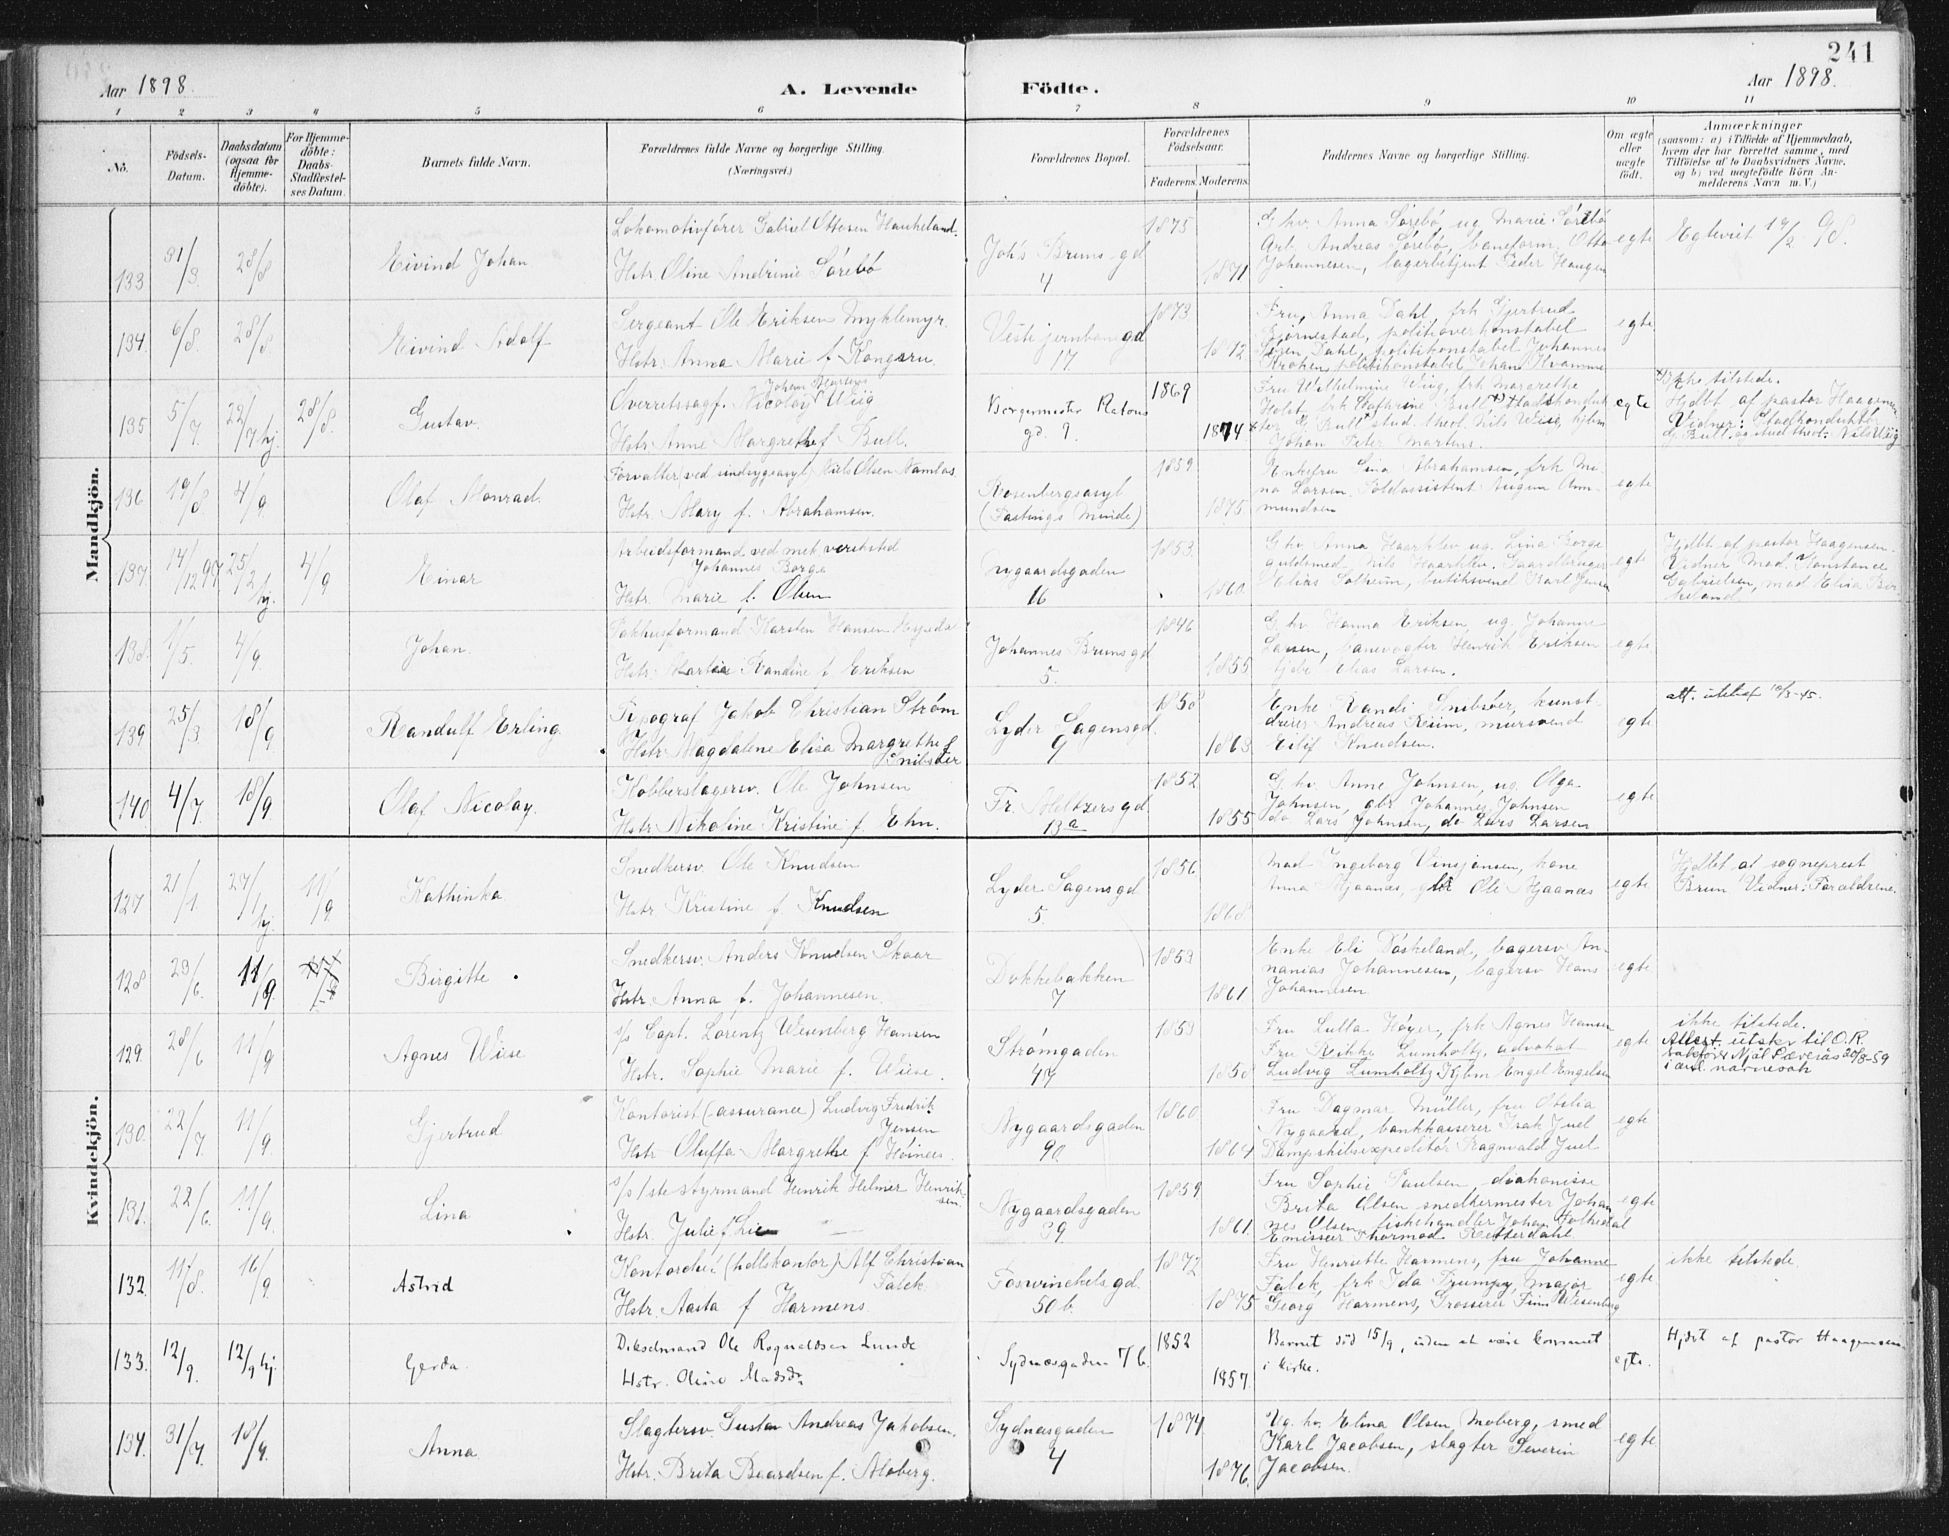 241
Aar 1898.
A. Levende
Födte.
Aar 1898.
1 2 3 4 5 6 7 8 9 10 11
No.
Födsels-Datum.
Daabsdatum (ogsaa för Hjemme-döbte).
For Hjemme-döbte: Daabs-Stadfæstel-ses Datum.
Barnets fulde Navn.
Forældrenes fulde Navne og borgerlige Stilling. (Næringsvei.)
Forældrenes Bopæl.
Forældrenes Födselsaar.
Faderens. Moderens.
Faddernes Navne og borgerlige Stilling.
Om ægte eller uægte födt.
Anmærkninger
(saasom: a) i Tilfælde af Hjemmedaab, hvem der har forrettet samme, med Tilföielse af to Daabsvidners Navne, og b) ved uægtefödte Börn An-melderens Navn m. V.)
Mandkjön.
133 31/3 28/8 Eivind Johan
Lokomotivfører Gabriel Ottesen Haukeland.
Hstr. Oline Andrine Sørebø
Johs Bruns gd 4
1875 1871
G. hv. Anna Sørebø, ug. Marie Sørebø
Arb. Andreas Sørebø, baneform. Otto
Johannesen, lagerbetjent Peder Haugen
egte
Egteviet 19/2 98.
134. 6/8 28/8 Eivind Adolf
Sergeant Ole Eriksen Myklemyr.
Hstr. Anna Marie f. Kongsru.
Vestre jernbanegd 17
1873 1872
Fru Anna Dahl, frk Gjertrud
Bjørnestad, politioverkonstabel
Søren Dahl, politikonstabel Johannes
Kroken, politikonstabel Johan Kvamme
egte
135 5/7. 22/7 hj. 28/8. Gustav.
Overretssagf. Nicolay Johan Martens Wiig
Hstr. Anne Margrethe f. Bull.
Borgermester Platous gd. 9.
1869 1874
Fru Wilhelmine Wiig, frk Margrethe
Holst, frk Cathrine Bull, Stadskonduk
tør G. Bull, stud. theol. Nils Wiig, kjbm
Johan Peter Martens.
egte
Ikke tilstede.
Hjdbt af pastor Haagensen
Vidner: Stadkonduktør
G. Bull og stud theol: Nils Wiig
136 19/8 4/9. Olaf Monrad.
Forvalter (ved sindsygeasyl) Niels Olsen Namlos
Hstr. Mary f. Abrahamsen.
Rosenbergsasyl
(Fastings Minde)
1859 1875
Enkefru Lina Abrahamsen, frk Mi-
na Larsen. Toldassistent August Am-
mundsen
egte
137. 14/12 97. 25/2 hj. 4/9 Einar
Arbeidsformand ved mek verksted
Johannes Borge
Hstr. Marie f. Olsen
Nygaardsgaden 16
1853 1860
G. hv. Anna Haarklev ug. Lina Borge
guldsmed Nils Haarklev, Gaardbruger
Elias Solheim, butiksvend Karl Jensen
egte
Hjdbt af pastor Haagensen.
Vidner Mad. Konstance
Gabrielsen, mad Elisa Bir
keland
138. 1/5. 4/9. Johan.
Pakhusformand Karsten Hansen
Hstr. Martine Randine f. Eriksen
Johannes Bruns gd 5.
1846 1855
G. hv. Hanna Eriksen ug. Johanne
Larsen, banevogter Henrik Eriksen
Elias Larsen.
egte
139 25/3 18/9 Randulf Erling.
Typograf Jakob Christian Strøm
Hstr. Magdalene Elisa Margrethe f. Snibsøer
Lyder Sagensgd. 9
1858 1863
Enke Randi Snibsøer, kunst-
dreier Andreas Riim, mursvend
Eilif Knudsen.
egte
att. utskr 12/3-45.
140 4/7. 18/9. Olaf Nicolay.
Kobberslagersv. Ole Johnsen
Hstr. Nikoline Kristine f. Ehn.
Fr. Meltzers gd 13 a
1852 1855
G. hv. Anne Johnsen, ug. Olga
Johnsen, arb. Johannes Johnsen
do Lars Johnsen, do Lars Larsen
egte
Kvindekjön.
127 21/1 24/1 hj. 11/9. Kathinka
Snedkersv. Ole Knudsen
Hstr. Kristine f. Knudsen
Lyder Sagens gd 5.
1856 1868
Mad Ingeborg Vinsjansen, kone
Anna Mjaanæs, Ole Mjaanæs
egte
Hjdbt af sogneprest
Brun Vidner: Forældrene.
128 23/6. 11/9. Birgitte
Snedkersv. Anders Knudsen Skaar
Hstr. Anna f. Johannesen.
Dokkebakken 7
1853 1861
Enke Eli Døskeland, bagersv An-
nanias Johannesen, bagersv Hans
Johannesen
egte
129. 28/6 11/9 Agnes Wiese
s/s Capt. Lorentz Wesenberg Hansen
Hstr. Sophie Marie f. Wiese.
Strømgaden 47
1853 1858
Fru Lulla Høyer, frk Agnes Hansen
Fru Rikke Lumholtz, advokat
Ludvig Lumholtz, Kjbm Engel Engelsen
egte
ikke tilstede.
Attest utskr til O.R.
sakfører Njål Sæveraas 20/8-59
i anl. navnesak
130. 22/7 11/9. Gjertrud
Kontorist (assurance) Ludvig Fredrik Jensen
Hstr Oluffa Margrethe f Høines.
Nygaardsgaden 90.
1860 1864
Fru Dagmar Müller, fru Otelia
Nygaard, bankkasserer Isak Juel
Dampskibsexpeditør Ragnvald Juel
egte
131. 22/6. 11/9. Lina
s/s 1ste styrmand Henrik Helmer Henrik-sen.
Hstr. Julie f. Lie
Nygaardsgaden 39
1859 1861.
Fru Sophie Paulsen, diakonisse
Brita Olsen snedkermester Johan
nes Olsen, fiskehandler Johan Folkedal
Emissær Thormod Rettedal.
egte
132. 11/8. 16/9. Astrid
Kontorchef (hdlskontor) Alf Christian Falck
Hstr. Aasta f Harmens.
Foswinckels gd. 50 b.
1872 1875
Fru Henriette Harmens, fru Johanne
Falck, frk Ida Trumpy, major
Georg Harmens, Grosserer Finn Wesenberg
egte
ikke tilstede.
133. 12/9. 12/9 hj. Gerda.
Dikselmand Ole Rognaldsen Lunde
Hstr. Oline Madsdr
Sydnesgaden 7 b.
1852 1857.
Barnet død 15/9, uden at være kommet
i kirke.
egte.
Hjdbt af pastor Haagensen.
134. 31/7. 18/9. Anna
Slagtersv. Gustav Andreas Jakobsen.
Hstr. Brita Baardsen f. Moberg.
Sydnesgaden 4
1874 1876.
Ug. hv. Elina Olsen Moberg, smed
Karl Jacobsen, slagter Severin
Jacobsen.
egte